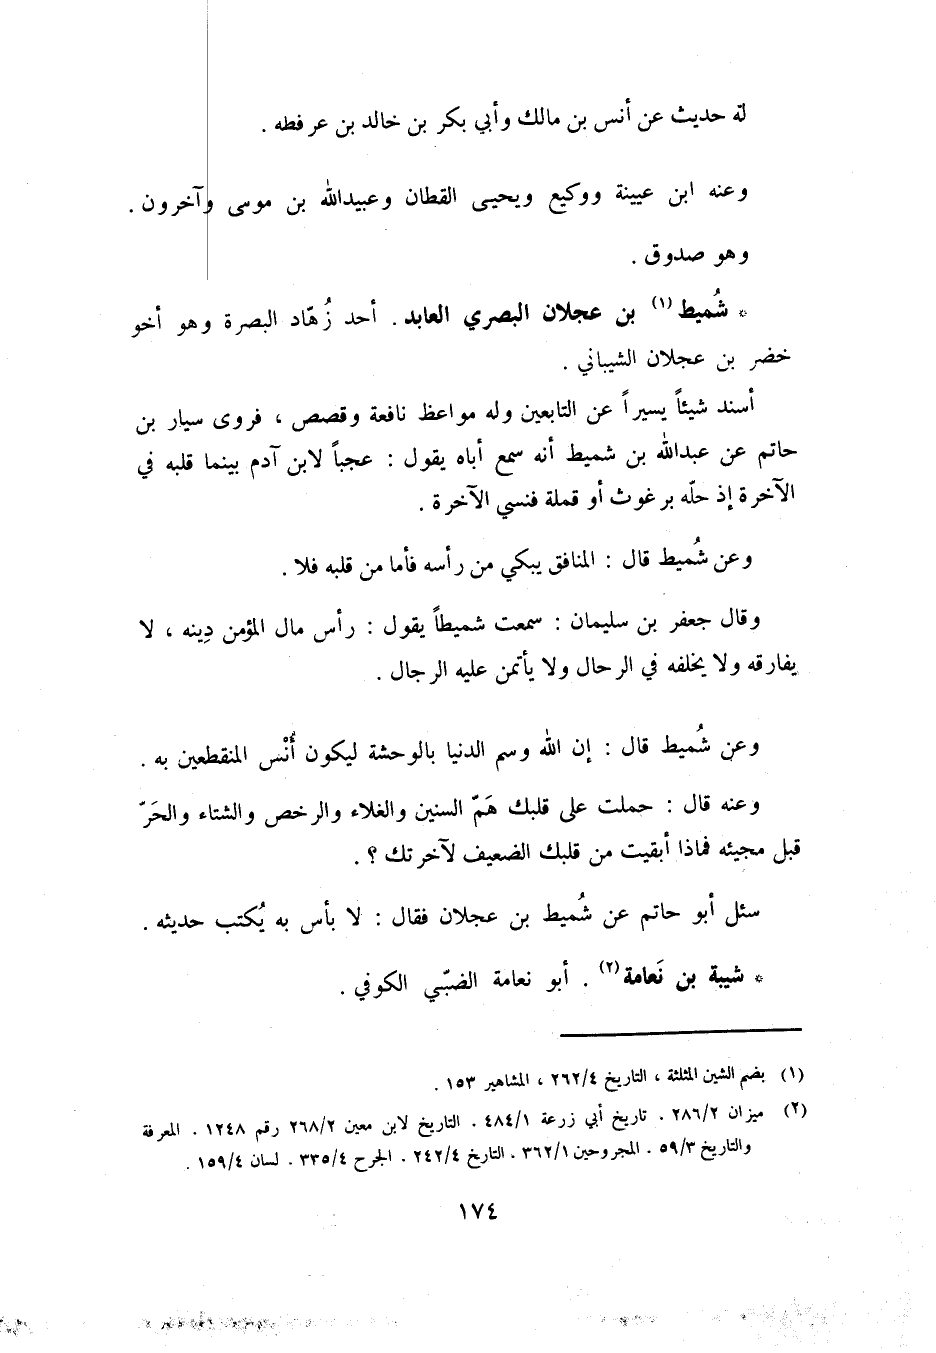 له حديث عن أنس بن مالك وأبي بكر بن خالد بن عرفطه .
وعنه ابن عيينة ووكيع ويحيى القطان وعبيدالله بن موسى وآخرون .
وهو صدوق .
* شُميط (١) بن عجلان البصري العابد . أحد زُهّاد البصرة وهو أخو
خضر بن عجلان الشيباني .
أسند شيئاً يسيراً عن التابعين وله مواعظ نافعة وقصص ، فروى سيار بن
حاتم عن عبدالله بن شميط أنه سمع أباه يقول : عجباً لابن آدم بينما قلبه في
الآخرة إذ حلّه برغوث أو قملة فنسي الآخرة .
وعن شُميط قال : المنافق يبكي من رأسه فأما من قلبه فلا .
وقال جعفر بن سليمان : سمعت شميطاً يقول : رأس مال المؤمن دِينه ، لا
يفارقه ولا يخلفه في الرحال ولا يأتمن عليه الرجال .
وعن شُميط قال : إن الله وسم الدنيا بالوحشة ليكون أُنْس المنقطعين به .
وعنه قال : حملت على قلبك هَمّ السنين والغلاء والرخص والشتاء والحَرّ
قبل مجيئه فماذا أبقيت من قلبك الضعيف لآخرتك ؟ .
سئل أبو حاتم عن شُميط بن عجلان فقال : لا بأس به يُكتب حديثه .
* شيبة بن نَعامة (٢) . أبو نعامة الضبّي الكوفي .
(١) بضم الشين المثلثة ، التاريخ ٢٦٢/٤ ، المشاهير ١٥٣ .
(٢) ميزان ٢٨٦/٢ . تاريخ أبي زرعة ٤٨٤/١ . التاريخ لابن معين ٢٦٨/٢ رقم ١٢٤٨ . المعرفة
والتاريخ ٥٩/٣ . المجروحين ٣٦٢/١ . التارخ ٢٤٢/٤ . الجرح ٣٣٥/٤ . لسان ١٥٩/٤ .
١٧٤